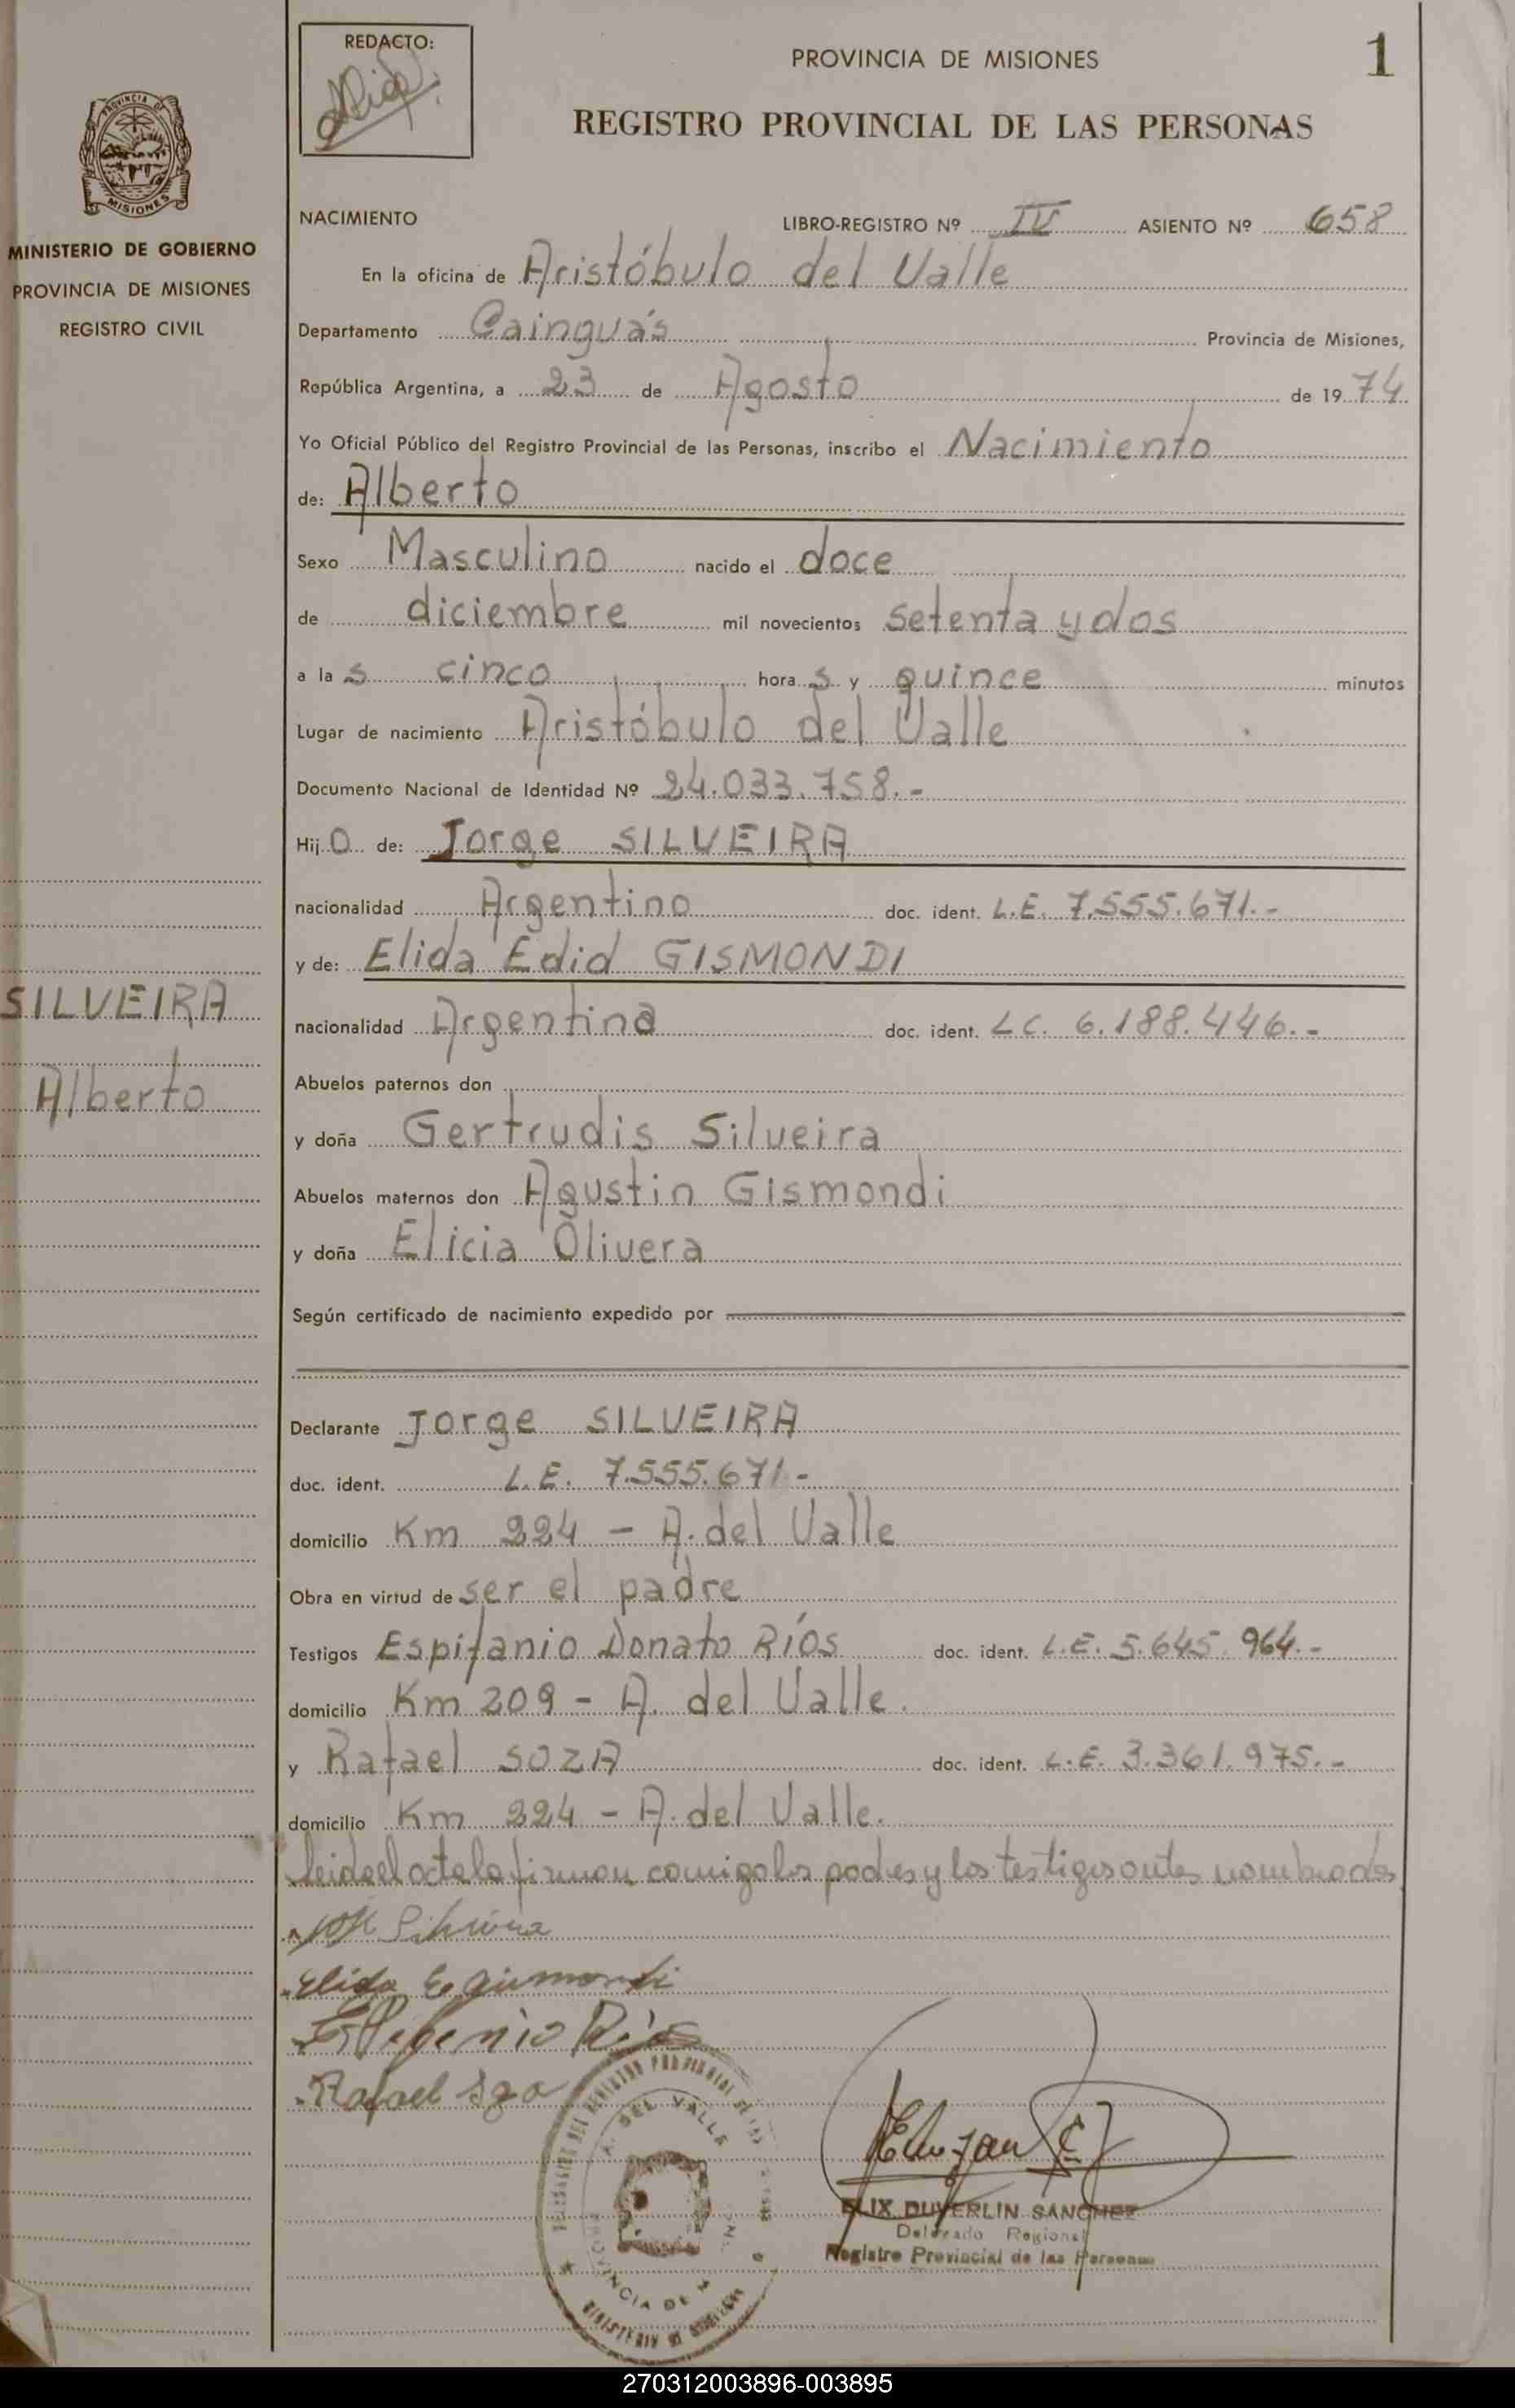 REDACTO:
PROVINCIA DE MISIONES
1
REGISTRO PROVINCIAL DE LAS PERSONAS
PROVINCIA DE
MISIONES
MINISTERIO DE GOBIERNO
PROVINCIA DE MISIONES
REGISTRO CIVIL
NACIMIENTO LIBRO-REGISTRO Nº IV ASIENTO Nº 658
En la oficina de Aristóbulo del Valle
Departamento Cainguás Provincia de Misiones,
República Argentina, a 23 de Agosto de 1974
Yo Oficial Público del Registro Provincial de las Personas, inscribo el Nacimiento
de: Alberto
Sexo Masculino nacido el doce
de diciembre mil novecientos setenta y dos
a las cinco horas y quince minutos
Lugar de nacimiento Aristóbulo del Valle
Documento Nacional de Identidad Nº 24.033.758.-
Hijo de: Jorge SILVEIRA
nacionalidad Argentino doc. ident. L.E. 7.555.671.-
y de: Elida Edid GISMONDI
nacionalidad Argentina doc. ident. LC. 6.188.446.-
SILVEIRA
Alberto
Abuelos paternos don
y doña Gertrudis Silveira
Abuelos maternos don Agustin Gismondi
y doña Elicia Olivera
Según certificado de nacimiento expedido por
Declarante Jorge SILVEIRA
doc. ident. L.E. 7.555.671-
domicilio Km 224 - A. del Valle
Obra en virtud de ser el padre
Testigos Espifanio Donato Ríos doc. ident. L.E. 5.645.964.-
domicilio Km 209 - A. del Valle.
y Rafael SOZA doc. ident. L.E. 3.361.975.-
domicilio Km 224 - A. del Valle.
leida el acta la firman comigo los padres y los testigos antes nombrados
Silveira
Elida E. Gismondi
Ríos
Rafael
A. DEL VALLE
PROVINCIA DE
DUVERLIN SANCHEZ
Delegado Regional
Registro Provincial de las Personas
270312003896-003895